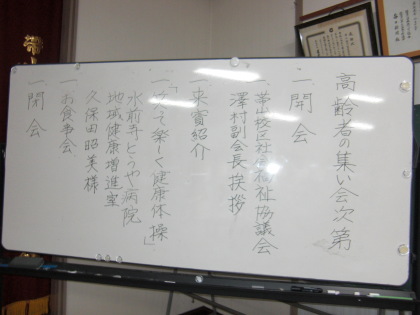 高齢者の集い会次第
一 開会
一 帯山校区社会福祉協議会
澤村副会長挨拶
一 来賓紹介
一「笑って楽しく健康体操」
水前寺とうや病院
地域健康増進室
久保田昭美様
一 お食事会
一 閉会